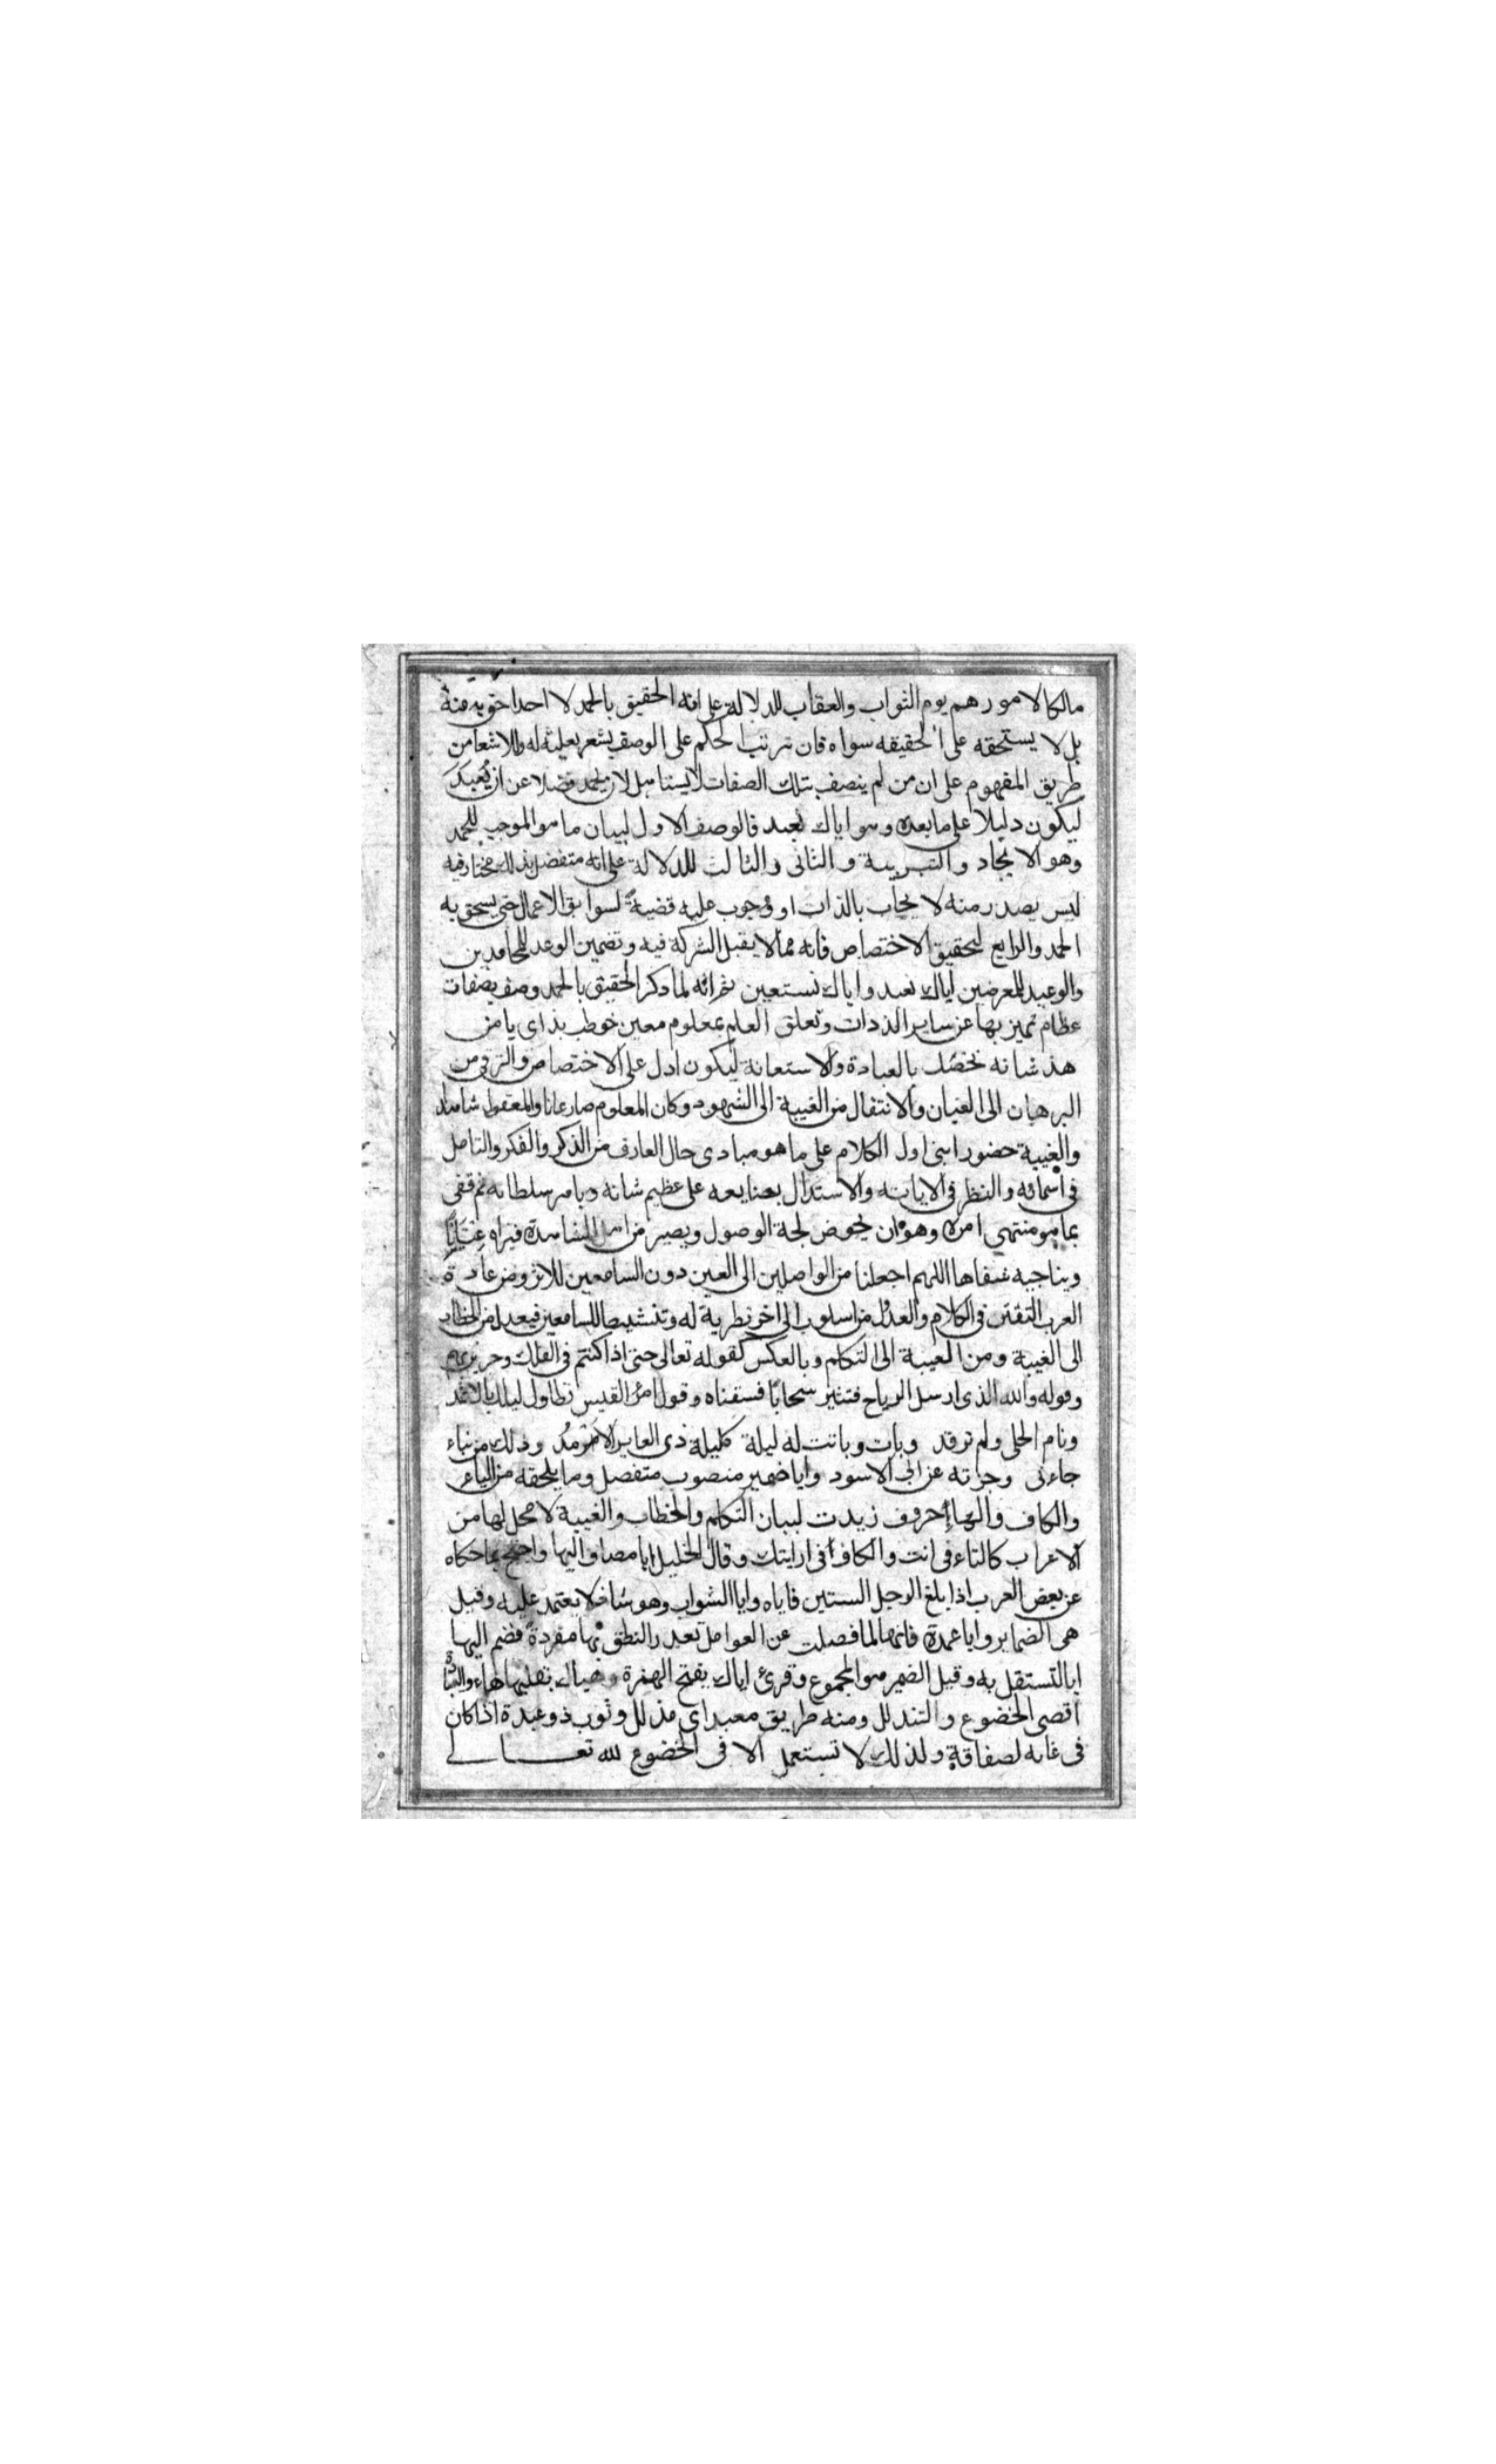 مالكا لامورهم يوم الثواب والعقاب للدلالة على انه الحقيق بالحمد لا احد احق به منه
بل لا يستحقه على الحقيقه سواه فان ترتب الحكم على الوصف يشعر بعليته له وللاشعار من
طريق المفهوم على ان من لم يتصف بتلك الصفات لا يستاهل لان يحمد فضلا عن ان يُعبد
ليكون دليلا على ما بعده وهو اياك نعبد فالوصف الاول لبيان ما هو الموجب للحمد
وهو الايجاد والتربية والثانى والثالث للدلالة على انه متفضل بذلك مختار فيه
ليس يصدر منه لايجاب بالذات او وجوب عليه قضيةً لسوابق الاعمال حتى يستحق به
الحمد والرابع لتحقيق الاختصاص فانه مما لا يقبل الشركة فيه وتضمين الوعد للحامدين
والوعيد للمعرضين اياك نعبد واياك نستعين ثم انه لما ذكر الحقيق بالحمد وصف بصفات
عظام تميز بها عن ساير الذدات وتعلق العلم بمعلوم معين خوطب بذاى يا من
هذ شانه نخصّك بالعبادة والاستعانة ليكون ادل على الاختصاص والترقى من
البرهان الى العيان والانتقال من الغيبة الى الشهود وكان المعلوم صار عانا والمعقول شاهدا
والغيبة حضورا بنى اول الكلام على ما هو مبادى حال العارف من الذكر والفكر والتامل
فى اسمائه والنظر فى الاياته والاستدال بصنايعه على عظيم شانه وبامر سلطانه ثم قفى
بما هو منتهى امره وهو ان يخوض لجة الوصول ويصير من اهل المشاهدة فيراه عِيَانًا
ويناجيه شفاها اللهم اجعلنا من الواصلين الى العين دون السامعين للاثر ومن عادة
العرب التفنن فى الكلام والعدول من اسلوب الى اخر نطرية له وتنشيطا للسامعين فيعدل من الخطاب
الى الغيبة ومن الغيبة الى التكلم وبالعكس كقوله تعالى حتى اذا كنتم فى الفلك وجرين بهم
وقوله والله الذى ارسل الرياح فتثير سحابًا فسقناه وقول امرُ القيس تطاول ليلك بالاثمد
ونام الخلى ولم ترقد وبات وباتت له ليلة كليلة ذى العاير الارمدُ وذلك من نباء
جاءنى وخبرته عن ابى الاسود وايا ضمير منصوب متفصل وما يلحقه من الياء
والكاف والهاء حروف زيدت لبيان التكلم والخطاب والغيبة لا محل لها من
الاعراب كالتاء فى انت والكاف فى ارايتك وقال الخليل ايا مضاف اليها واحتج بما حكاه
عن بعض العرب اذا بلغ الرجل الستين فاياه وايا الشواب وهو شاذ لا يعتمد عليه وقيل
هى الضماير وايا عمدة فانها لما فصلت عن العوامل تعذر النطق بها مفردة فضم اليها
ايا لتستقل به وقيل الضمير هو المجموع وقرئ اياك بفتح الهمزة وهياك بقلبها هاء
اقصى الخضوع والتذلل ومنه طريق معبد اى مذلل وثوب ذو عبدة اذا كان
فى غايه لصفاقة ولذلك لا تستعمل الا فى الخضوع لله تعالى